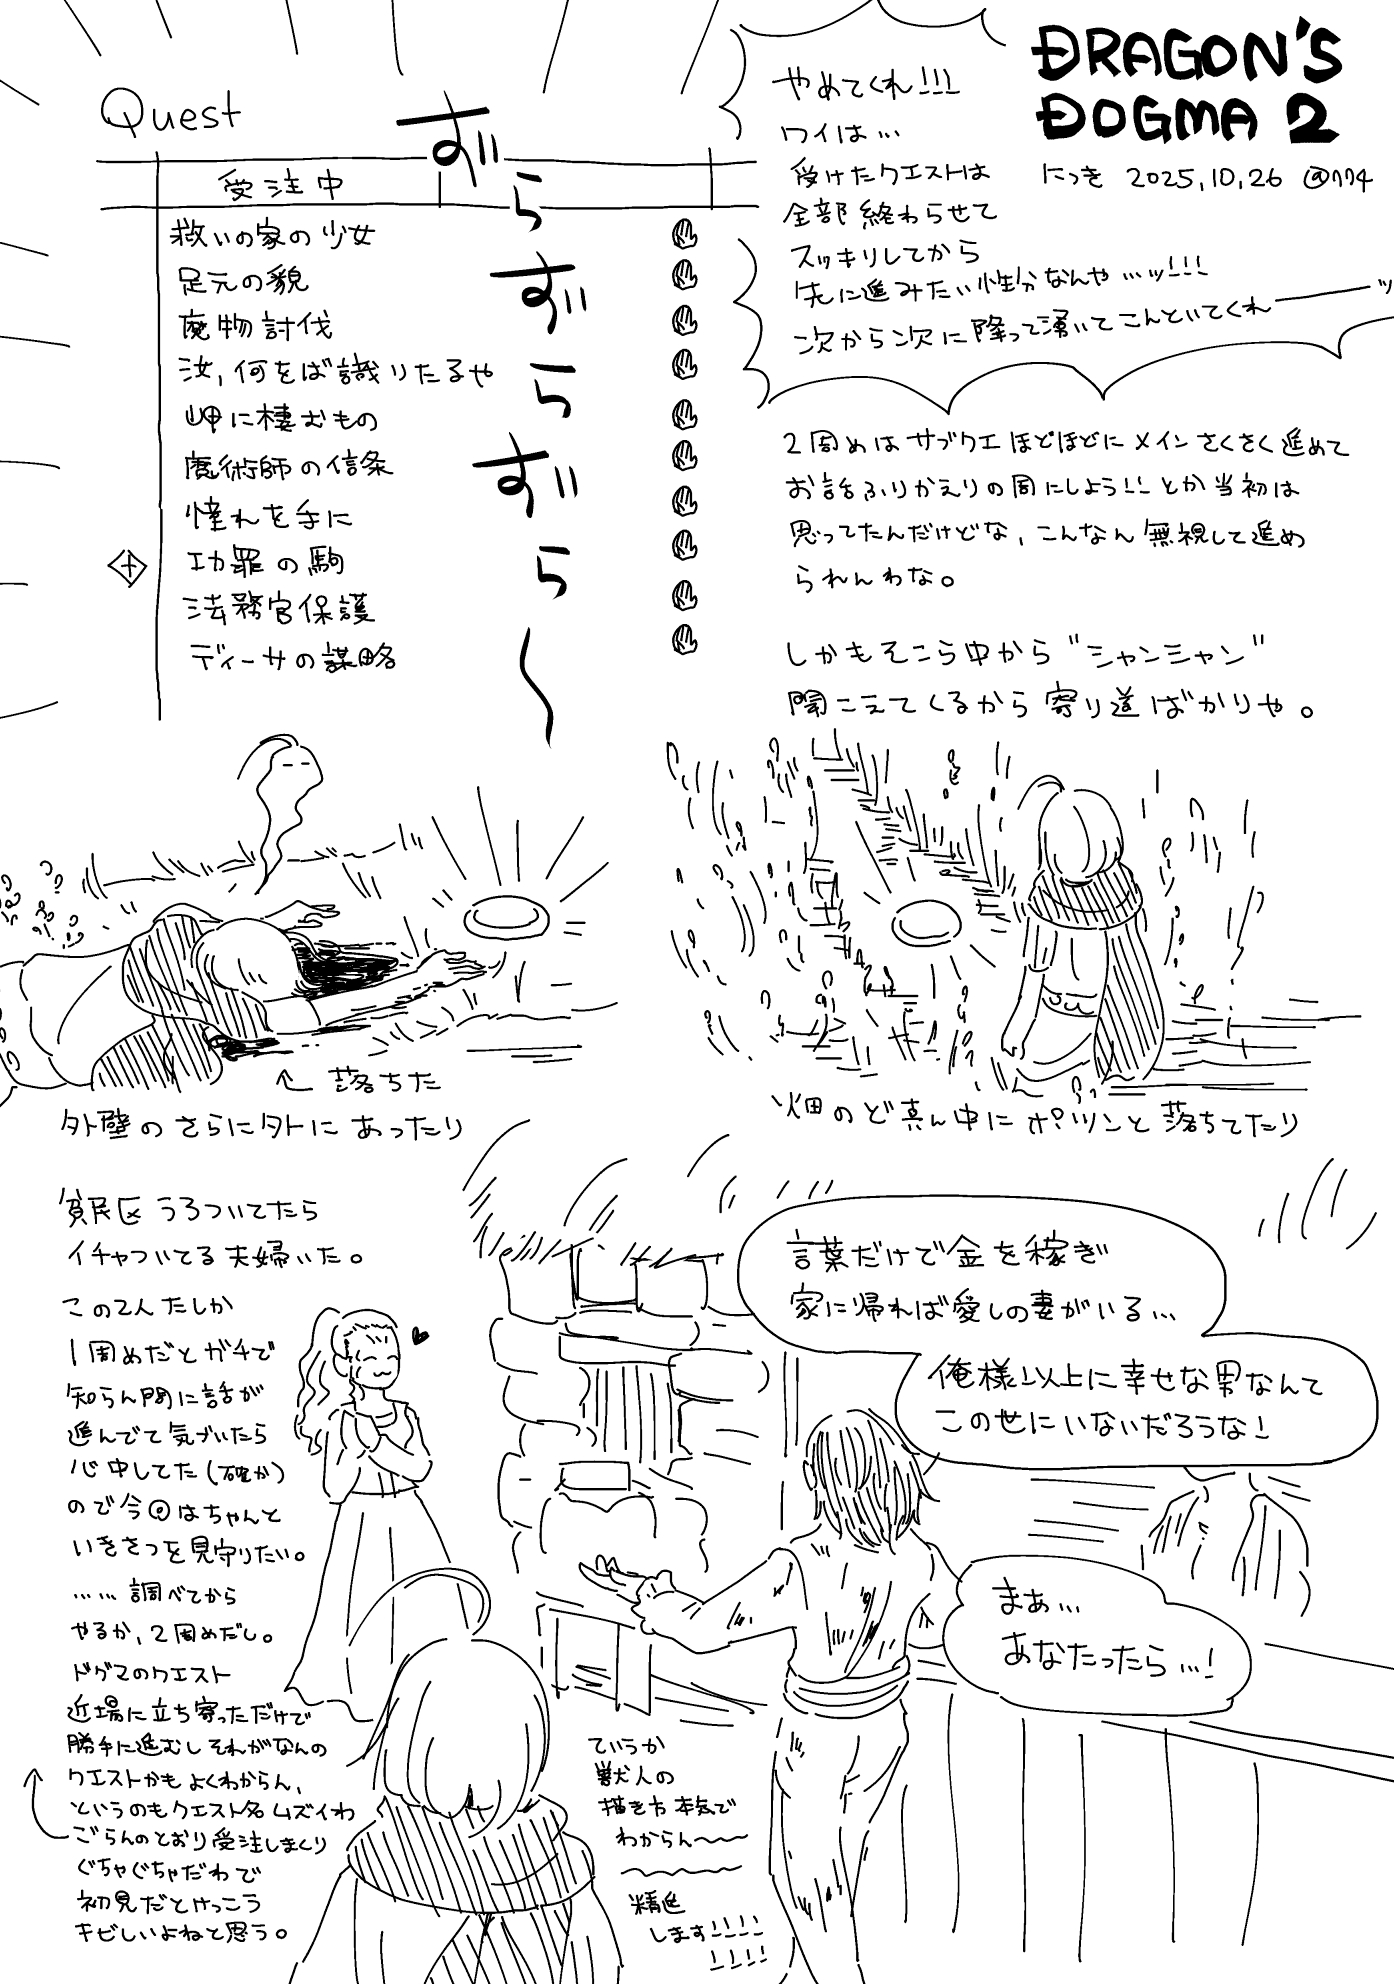 DRAGON'S
DOGMA 2
にっき 2025.10.26 @774
Quest
受注中
救いの家の少女
足元の貌
魔物討伐
汝、何をば識りたるや
岬に棲むもの
魔術師の信条
憧れを手に
功罪の駒
法務官保護
ディーサの謀略
ずらずらずら〜
やめてくれ!!!
ワイは…
受けたクエストは
全部終わらせて
スッキリしてから
先に進みたい性分なんや…ッ!!!
次から次に降って湧いてこんといてくれーーッ
2周めはサブクエほどほどにメインさくさく進めて
お話ふりかえりの周にしよう!!とか当初は
思ってたんだけどな、こんなん無視して進め
られんわな。
しかもそこら中から"シャンシャン"
聞こえてくるから寄り道ばかりや。
↑落ちた
外壁のさらに外にあったり
畑のど真ん中にポツンと落ちてたり
貧民区うろついてたら
イチャついてる夫婦いた。
この2人たしか
1周めだとガチで
知らん間に話が
進んでて気づいたら
心中してた(確か)
ので今回はちゃんと
いきさつを見守りたい。
……調べてから
やるか、2周めだし。
ドグマのクエスト
近場に立ち寄っただけで
勝手に進むしそれがなんの
クエストかもよくわからん、
というのもクエスト名ムズイわ
ごらんのとおり受注しまくり
ぐちゃぐちゃだわで
初見だとけっこう
キビしいよねと思う。
言葉だけで金を稼ぎ
家に帰れば愛しの妻がいる…
俺様以上に幸せな男なんて
この世にいないだろうな!
まぁ…
あなたったら…!
ていうか
獣人の
描き方本気で
わからん〜〜
精進
します!!!!
!!!!